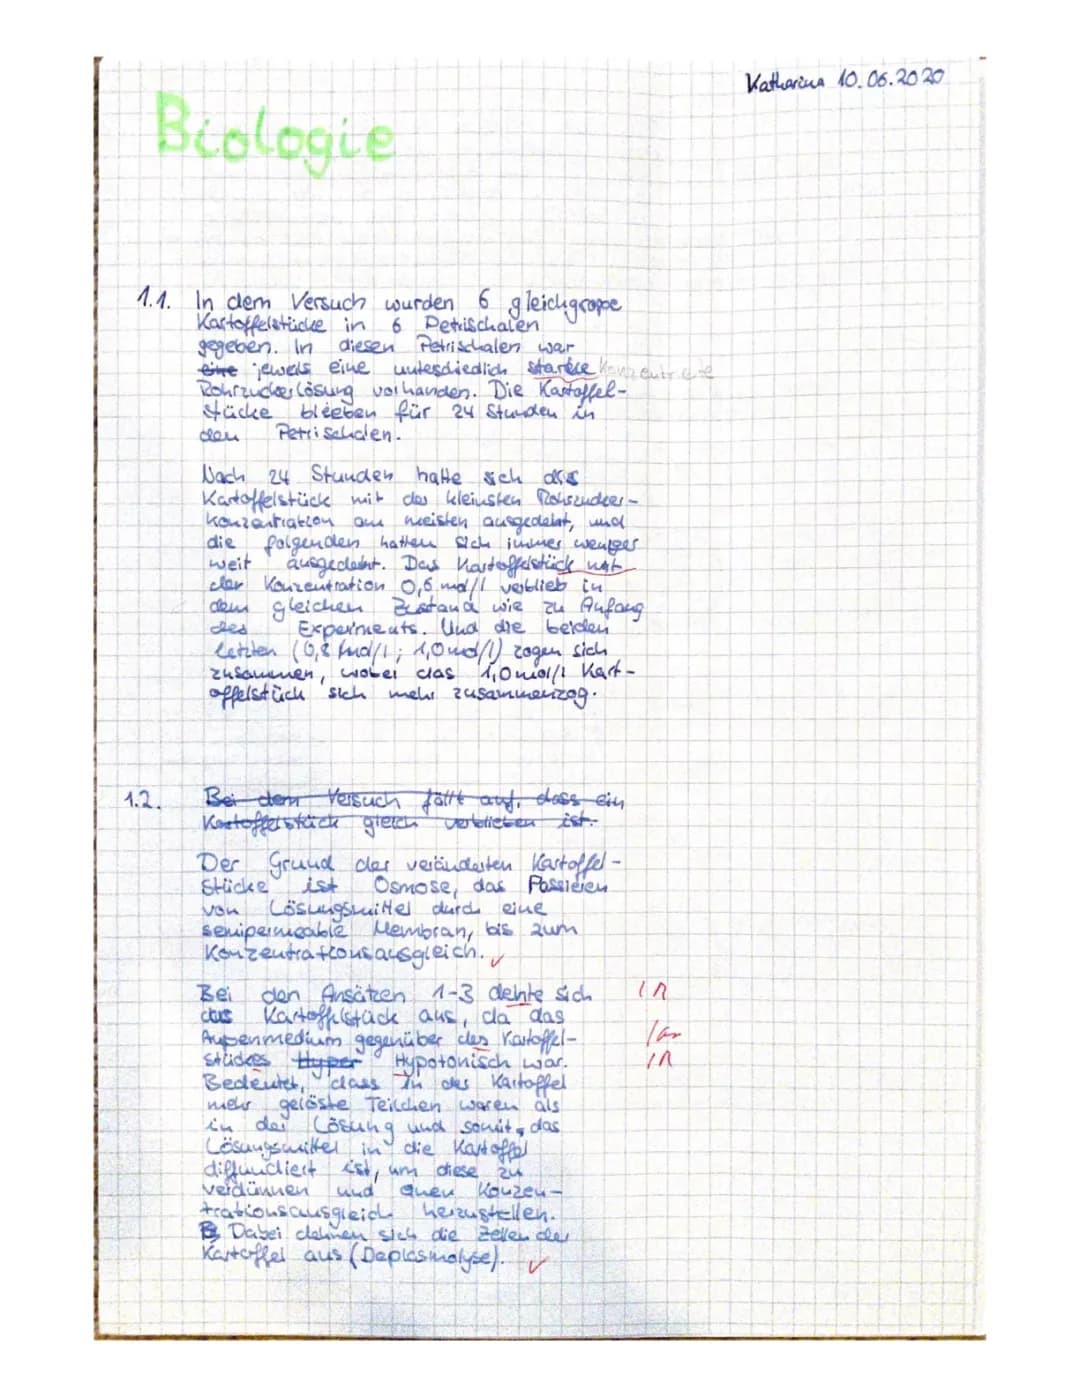 Katharina 10.06.2020
Biologie
1.1. In dem Versuch wurden 6 gleichgroße
Kartoffelstücke in 6 Petrischalen
gegeben. In diesen Petrischalen war
eine jeweils eine unterschiedlich starke Konzentrierte
Rohrzuckerlösung vorhanden. Die Kartoffel-
stücke blieben für 24 Stunden in
den Petrischalen.
Nach 24 Stunden hatte sich das
Kartoffelstück mit der kleinsten Rohrzucker-
konzentration am meisten ausgedehnt, und
die folgenden hatten sich immer weniger
weit ausgedehnt. Das Kartoffelstück mit
der Konzentration 0,6 mol/l verblieb in
dem gleichen Zustand wie zu Anfang
des Experiments. Und die beiden
letzten (0,8 mol/l; 1,0 mol/l) zogen sich
zusammen, wobei das 1,0 mol/l Kart-
offelstück sich mehr zusammenzog.
1.2. Bei dem Versuch fällt auf, dass ein
Kartoffelstück gleich verblieben ist.
Der Grund der veränderten Kartoffel-
stücke ist Osmose, das Passieren
von Lösungsmittel durch eine
semipermeable Membran, bis zum
Konzentrationsausgleich. ✓
Bei den Ansätzen 1-3 dehnte sich
das Kartoffelstück aus, da das
Außenmedium gegenüber des Kartoffel-
stückes Hyper Hypotonisch war.
Bedeutet, dass in der Kartoffel
mehr gelöste Teilchen waren als
in der Lösung und somit, das
Lösungsmittel in die Kartoffel
diffundiert ist, um diese zu
verdünnen und einen Konzen-
trationsausgleich herzustellen.
Dabei dehnen sich die Zellen der
Kartoffel aus (Deplasmolyse). ✓